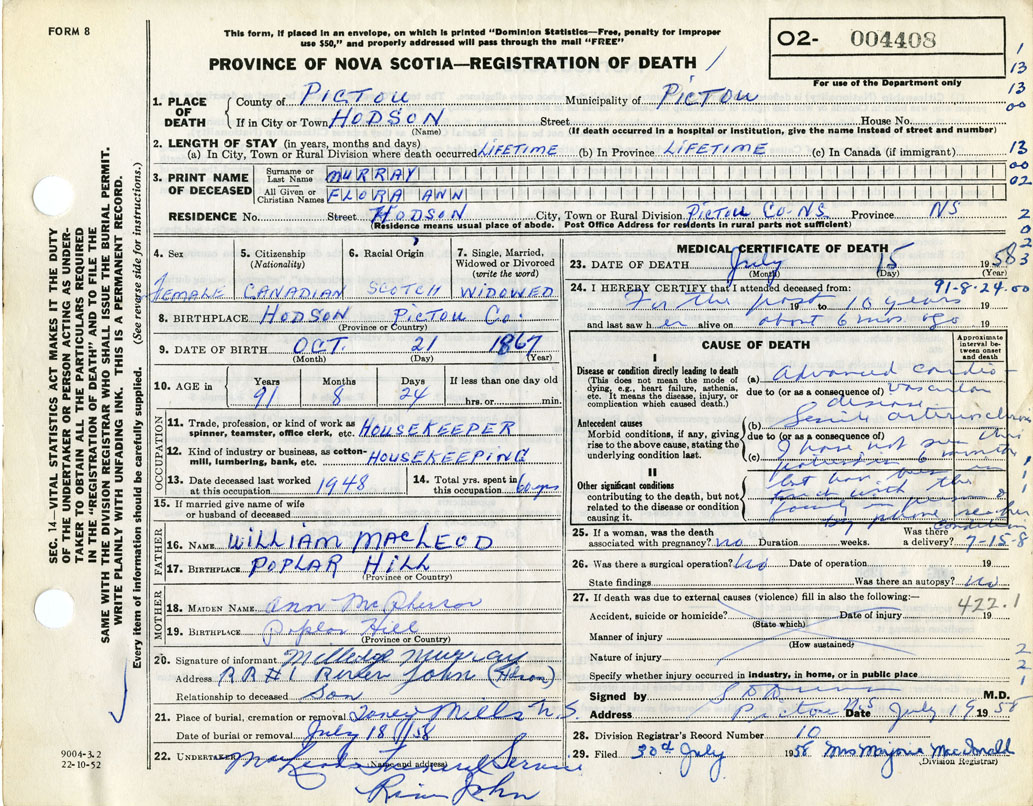 FORM 8
This form, if placed in an envelope, on which is printed "Dominion Statistics—Free, penalty for improper
use $50," and properly addressed will pass through the mail "FREE"
O2- 004408
For use of the Department only
PROVINCE OF NOVA SCOTIA—REGISTRATION OF DEATH
1. PLACE OF DEATH
County of PICTOU Municipality of PICTOU
If in City or Town HODSON Street House No.
(Name) (If death occurred in a hospital or institution, give the name instead of street and number)
2. LENGTH OF STAY (in years, months and days)
(a) In City, Town or Rural Division where death occurred LIFETIME (b) In Province LIFETIME (c) In Canada (if immigrant)
3. PRINT NAME OF DECEASED
Surname or Last Name MURRAY
All Given or Christian Names FLORA ANN
RESIDENCE No. Street HODSON City, Town or Rural Division PICTOU CO-NS Province NS
(Residence means usual place of abode. Post Office Address for residents in rural parts not sufficient)
4. Sex
FEMALE
5. Citizenship (Nationality)
CANADIAN
6. Racial Origin
SCOTCH
7. Single, Married, Widowed or Divorced (write the word)
WIDOWED
8. BIRTHPLACE HODSON PICTOU Co.
(Province or Country)
9. DATE OF BIRTH OCT. 21 1867
(Month) (Day) (Year)
10. AGE in
Years Months Days If less than one day old
91 8 24 hrs. or min.
OCCUPATION
11. Trade, profession, or kind of work as
spinner, teamster, office clerk, etc. HOUSEKEEPER
12. Kind of industry or business, as cotton-
mill, lumbering, bank, etc. HOUSEKEEPING
13. Date deceased last worked
at this occupation 1948
14. Total yrs. spent in
this occupation 60 yrs
15. If married give name of wife
or husband of deceased
FATHER
16. NAME WILLIAM MACLEOD
17. BIRTHPLACE POPLAR HILL
(Province or Country)
MOTHER
18. MAIDEN NAME Ann McPherson
19. BIRTHPLACE Poplar Hill
(Province or Country)
20. Signature of informant Milledge Murray
Address RR#1 River John (Hodson)
Relationship to deceased Son
21. Place of burial, cremation or removal Toney Mills N.S.
Date of burial or removal July 18/58
22. UNDERTAKER MacLeods Funeral Service
(Name and address)
River John
MEDICAL CERTIFICATE OF DEATH
23. DATE OF DEATH July 15 1958
(Month) (Day) (Year)
24. I HEREBY CERTIFY that I attended deceased from: 91-8-24.00
For the past 19 to 10 years 19
and last saw her alive on about 6 mos. ago 19
CAUSE OF DEATH
Approximate interval between onset and death
I
Disease or condition directly leading to death
(This does not mean the mode of
dying, e.g., heart failure, asthenia,
etc. It means the disease, injury, or
complication which caused death.)
(a) Advanced cardio-
due to (or as a consequence of) vascular
disease
Antecedent causes
Morbid conditions, if any, giving
rise to the above cause, stating the
underlying condition last.
(b) Senile arteriosclerosis
due to (or as a consequence of)
(c) I have not seen this
patient in 6 months
II
Other significant conditions
contributing to the death, but not
related to the disease or condition
causing it.
but have been in
touch with the
family in person or
by phone re her
condition
25. If a woman, was the death
associated with pregnancy? no Duration weeks. Was there
a delivery? 7-15-8
26. Was there a surgical operation? No Date of operation 19
State findings Was there an autopsy? no
27. If death was due to external causes (violence) fill in also the following:—
422.1
Accident, suicide or homicide? Date of injury 19
(State which)
Manner of injury
(How sustained)
Nature of injury
Specify whether injury occurred in industry, in home, or in public place
Signed by M.D.
Address Pictou N.S. Date July 19 1958
28. Division Registrar's Record Number 10
29. Filed 30th July 1958 Mrs Marjorie MacDonald
(Division Registrar)
SEC. 14—VITAL STATISTICS ACT MAKES IT THE DUTY
OF THE UNDERTAKER OR PERSON ACTING AS UNDER-
TAKER TO OBTAIN ALL THE PARTICULARS REQUIRED
IN THE "REGISTRATION OF DEATH" AND TO FILE THE
SAME WITH THE DIVISION REGISTRAR WHO SHALL ISSUE THE BURIAL PERMIT.
WRITE PLAINLY WITH UNFADING INK. THIS IS A PERMANENT RECORD.
Every item of information should be carefully supplied. (See reverse side for instructions.)
9004-3.2
22-10-52
1
13
13
00
13
00
02
2
0
3
1
1
2
2
1